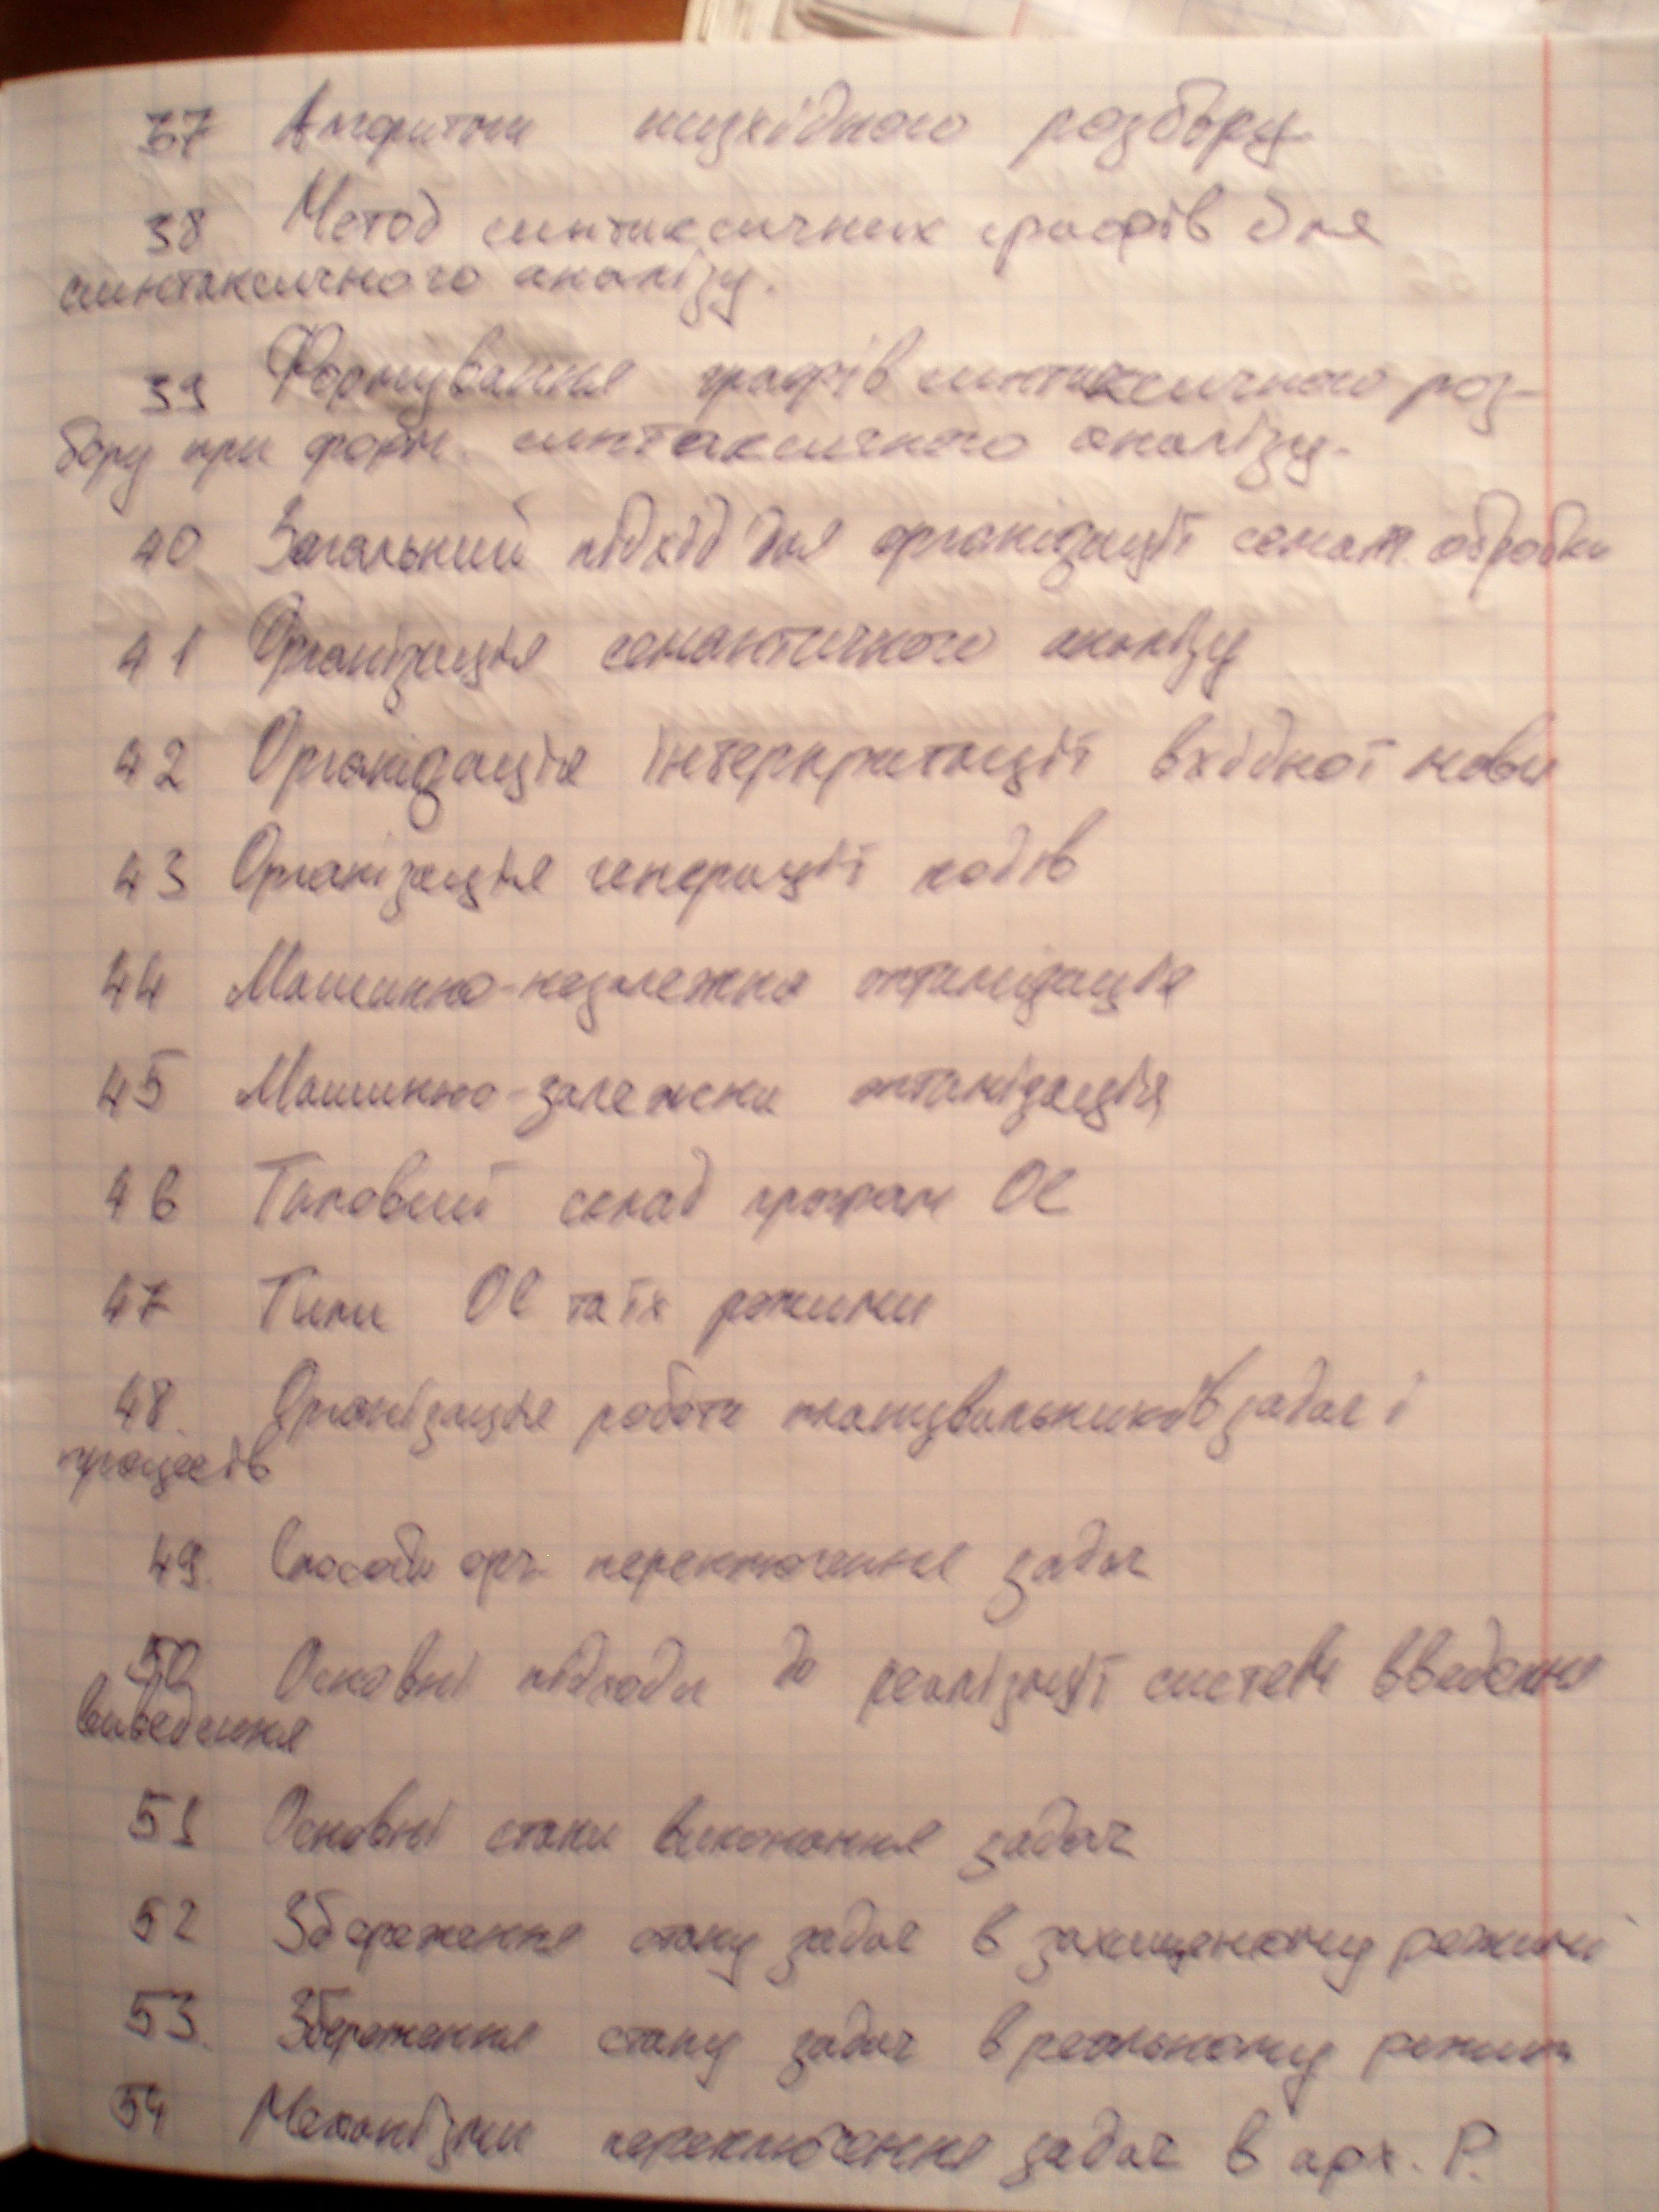 37 Алгоритм низхідного розбору
38 Метод синтаксичних графів для
синтаксичного аналізу.
39 Формування графів синтаксичного роз-
бору при форм. синтаксичного аналізу.
40 Загальний підхід для організації семант. обробки
41 Організація семантичного аналізу
42 Організація інтерпретації вхідної мови
43 Організація генерації кодів
44 Машинно-незалежна оптимізація
45 Машинно-залежна оптимізація
46 Типовий склад програм ОС
47 Типи ОС та їх режими
48. Організація роботи планувальників задач і
процесів
49. Способи орг. переключення задач
50 Основні підходи до реалізації систем введення
виведення
51 Основні стани виконання задач
52 Збереження стану задач в захищеному режимі
53. Збереження стану задач в реальному режимі
54 Механізми переключення задач в арх. Р.